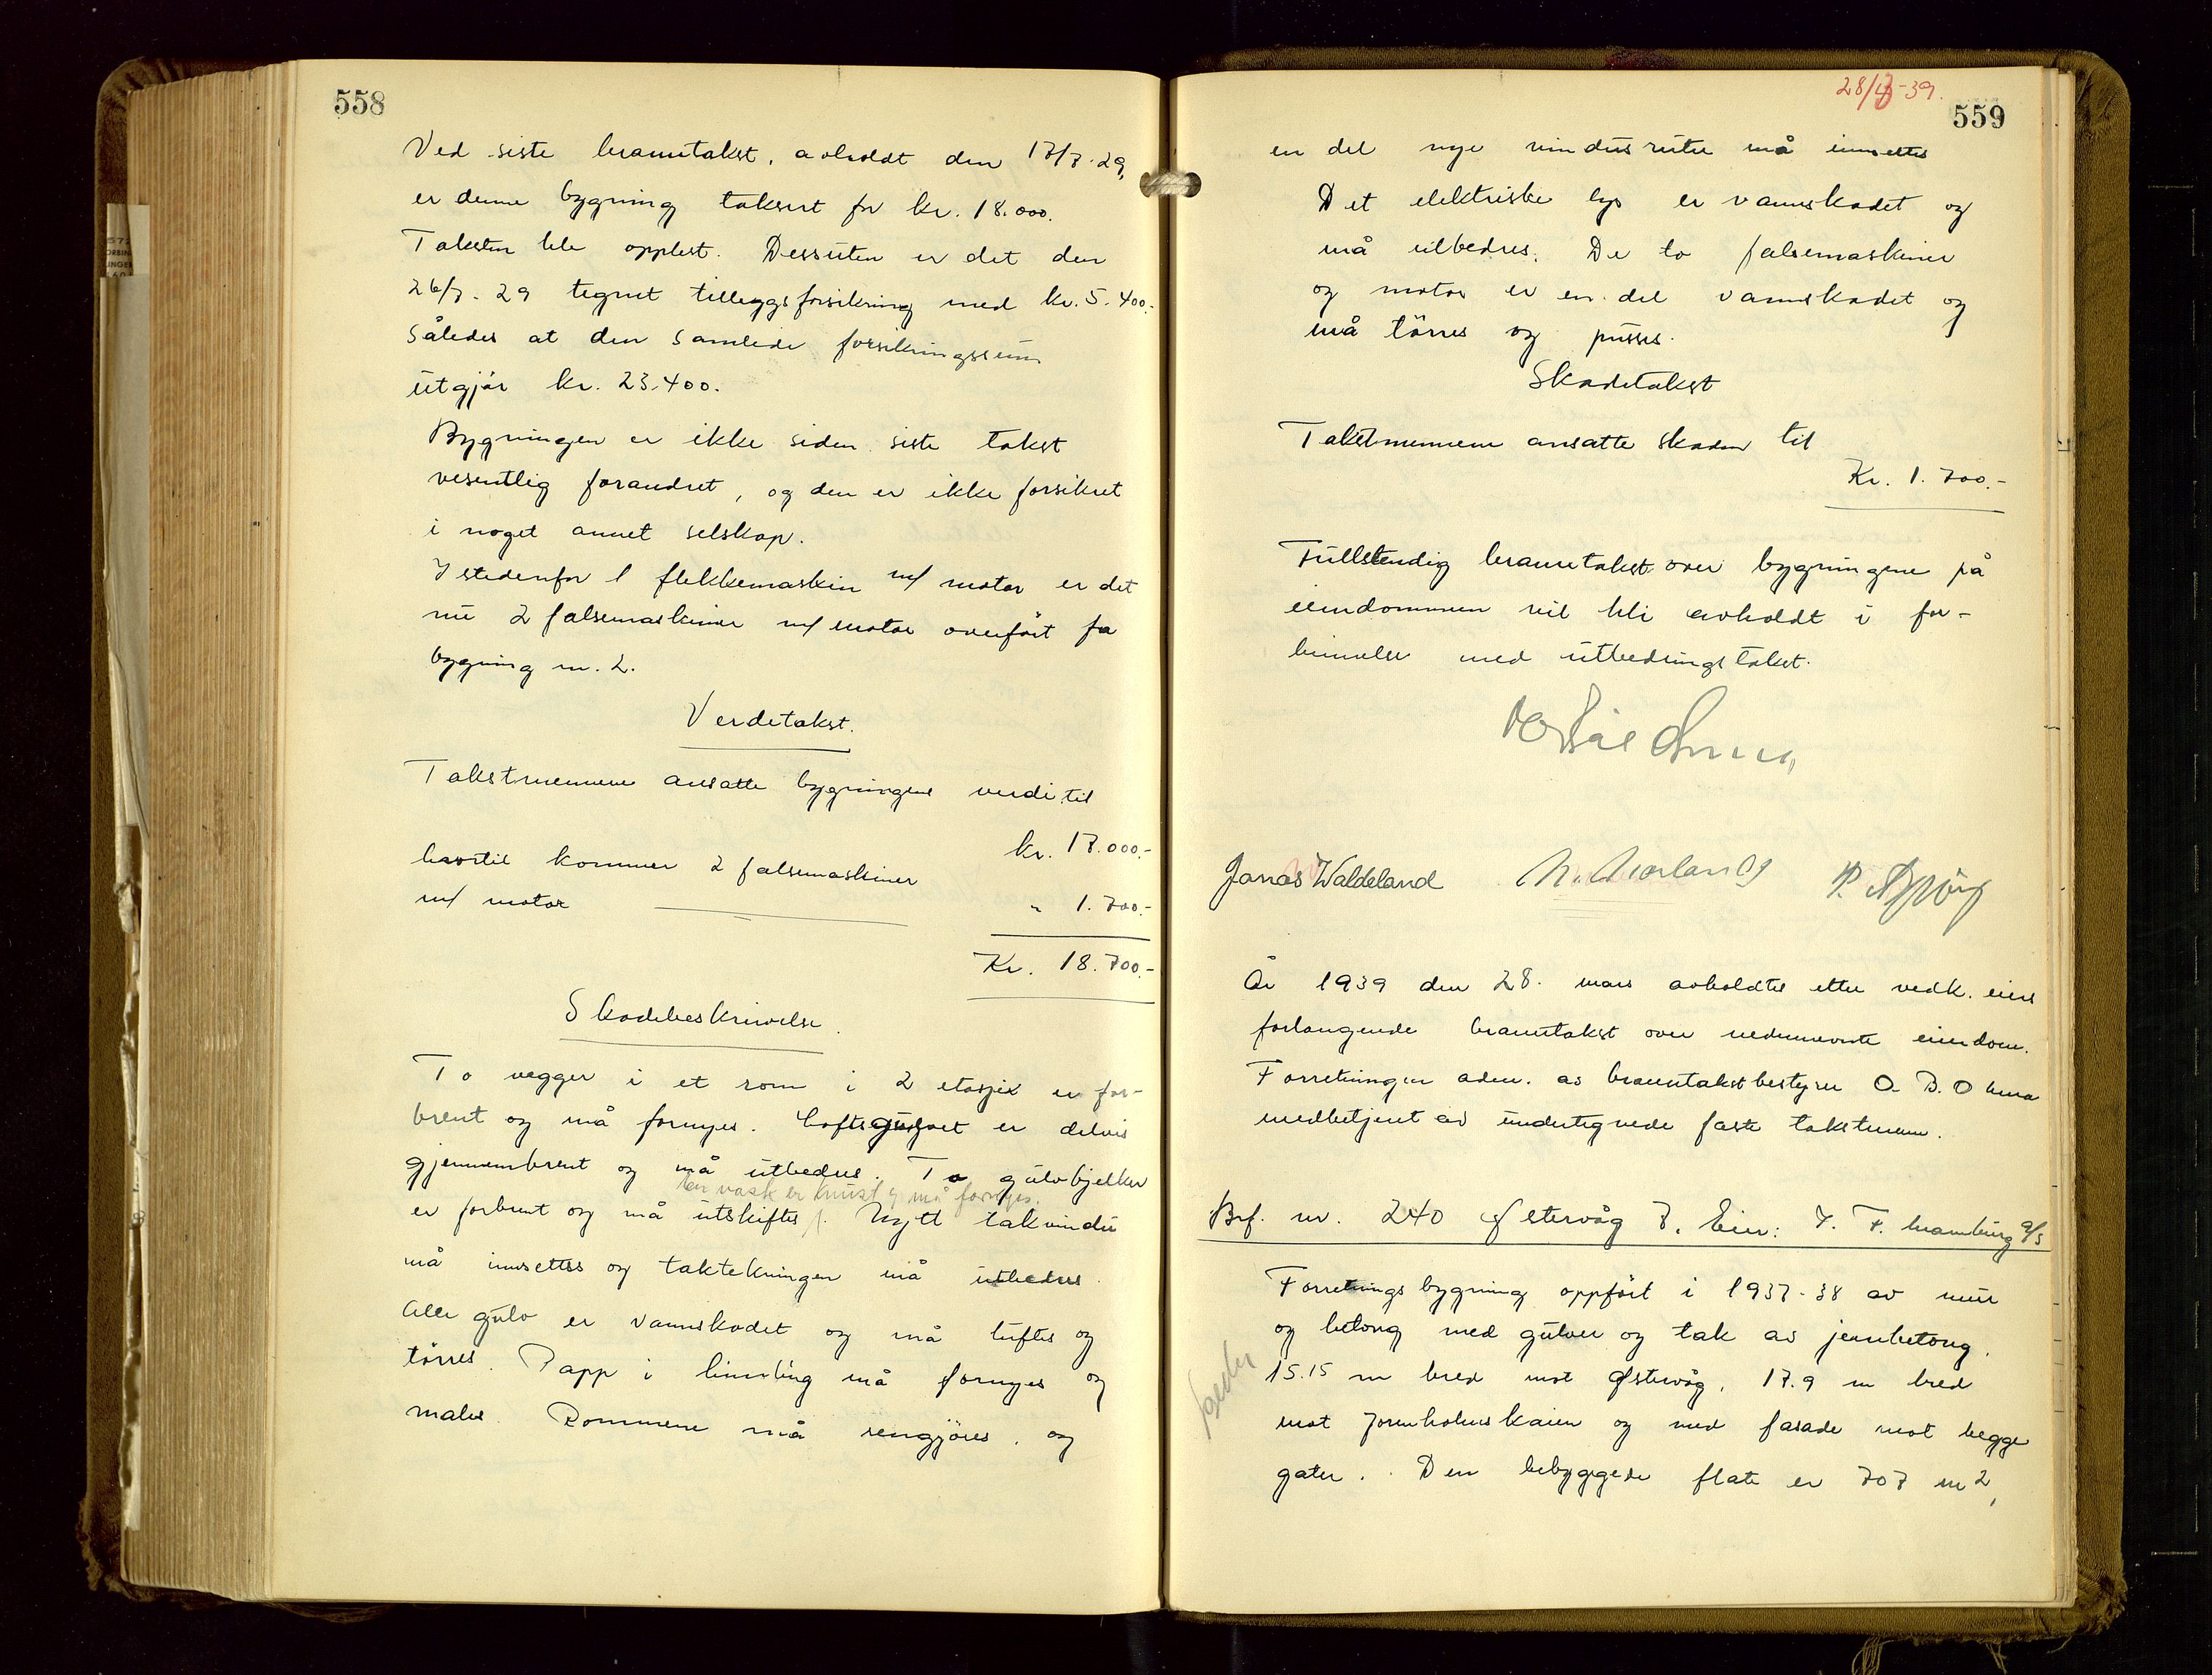 558
Ved siste branntakst, avholdt den 17/7-29,
er denne bygning taksert for kr. 18.000.
Taksten ble opplest. Dessuten er det den
26/7-29 tegnet tilleggsforsikring med kr. 5.400.-
således at den samlede forsikringssum
utgjør kr. 23.400.
Bygningen er ikke siden siste takst
vesentlig forandret, og den er ikke forsikret
i noget annet selskap.
Istedenfor 1 flekkemaskin m/ motor er det
nu 2 falsemaskiner m/ motor overført fra
bygning nr. 2.
Verditakst.
Takstmennene ansatte bygningens verdi til
kr. 17.000.-
hvortil kommer 2 falsemaskiner
m/ motor " 1.700.-
Kr. 18.700.-
Skadebeskrivelse.
To vegger i et rom i 2 etasje er for-
brent og må fornyes. Loftsgulvet er delvis
gjennembrent og må utbedres. To gulvbjelker
En vask er knust og må fornyes.
er forbrent og må utskiftes. Nytt takvindu
må innsettes og taktekningen må utbedres.
Alle gulv er vannskadet og må luftes og
tørres. Papp i himling må fornyes og
males. Rommene må rengjøres, og
28/3-39.
559
en del nye vindusruter må innsettes
Det elektriske lys er vannskadet og
må utbedres. De to falsemaskiner
og motor er en del vannskadet og
må tørres og pusses.
Skadetakst
Takstmennene ansatte skaden til
Kr. 1.700.-
Fullstendig branntakst over bygningene på
eiendommen vil bli avholdt i for-
binnelse med utbedringstakst.
Jonas Waldeland
År 1939 den 28. mars avholdtes etter vedk. eiers
forlangende branntakst over nedennevnte eiendom.
Forretningen adm. av branntakstbestyrer O. B. Oma
medbetjent av undertegnede faste takstmenn.
Brf. nr. 240 Østervåg 7. Eier: I. F. Mamburg A/S
Forretningsbygning oppført i 1937-38 av mur
og betong med gulver og tak av jernbetong.
15.15 m bred mot Østervåg, 17.9 m bred
mot Jorenholmskaien og med fasade mot begge
gater. Den bebyggede flate er 707 m2,